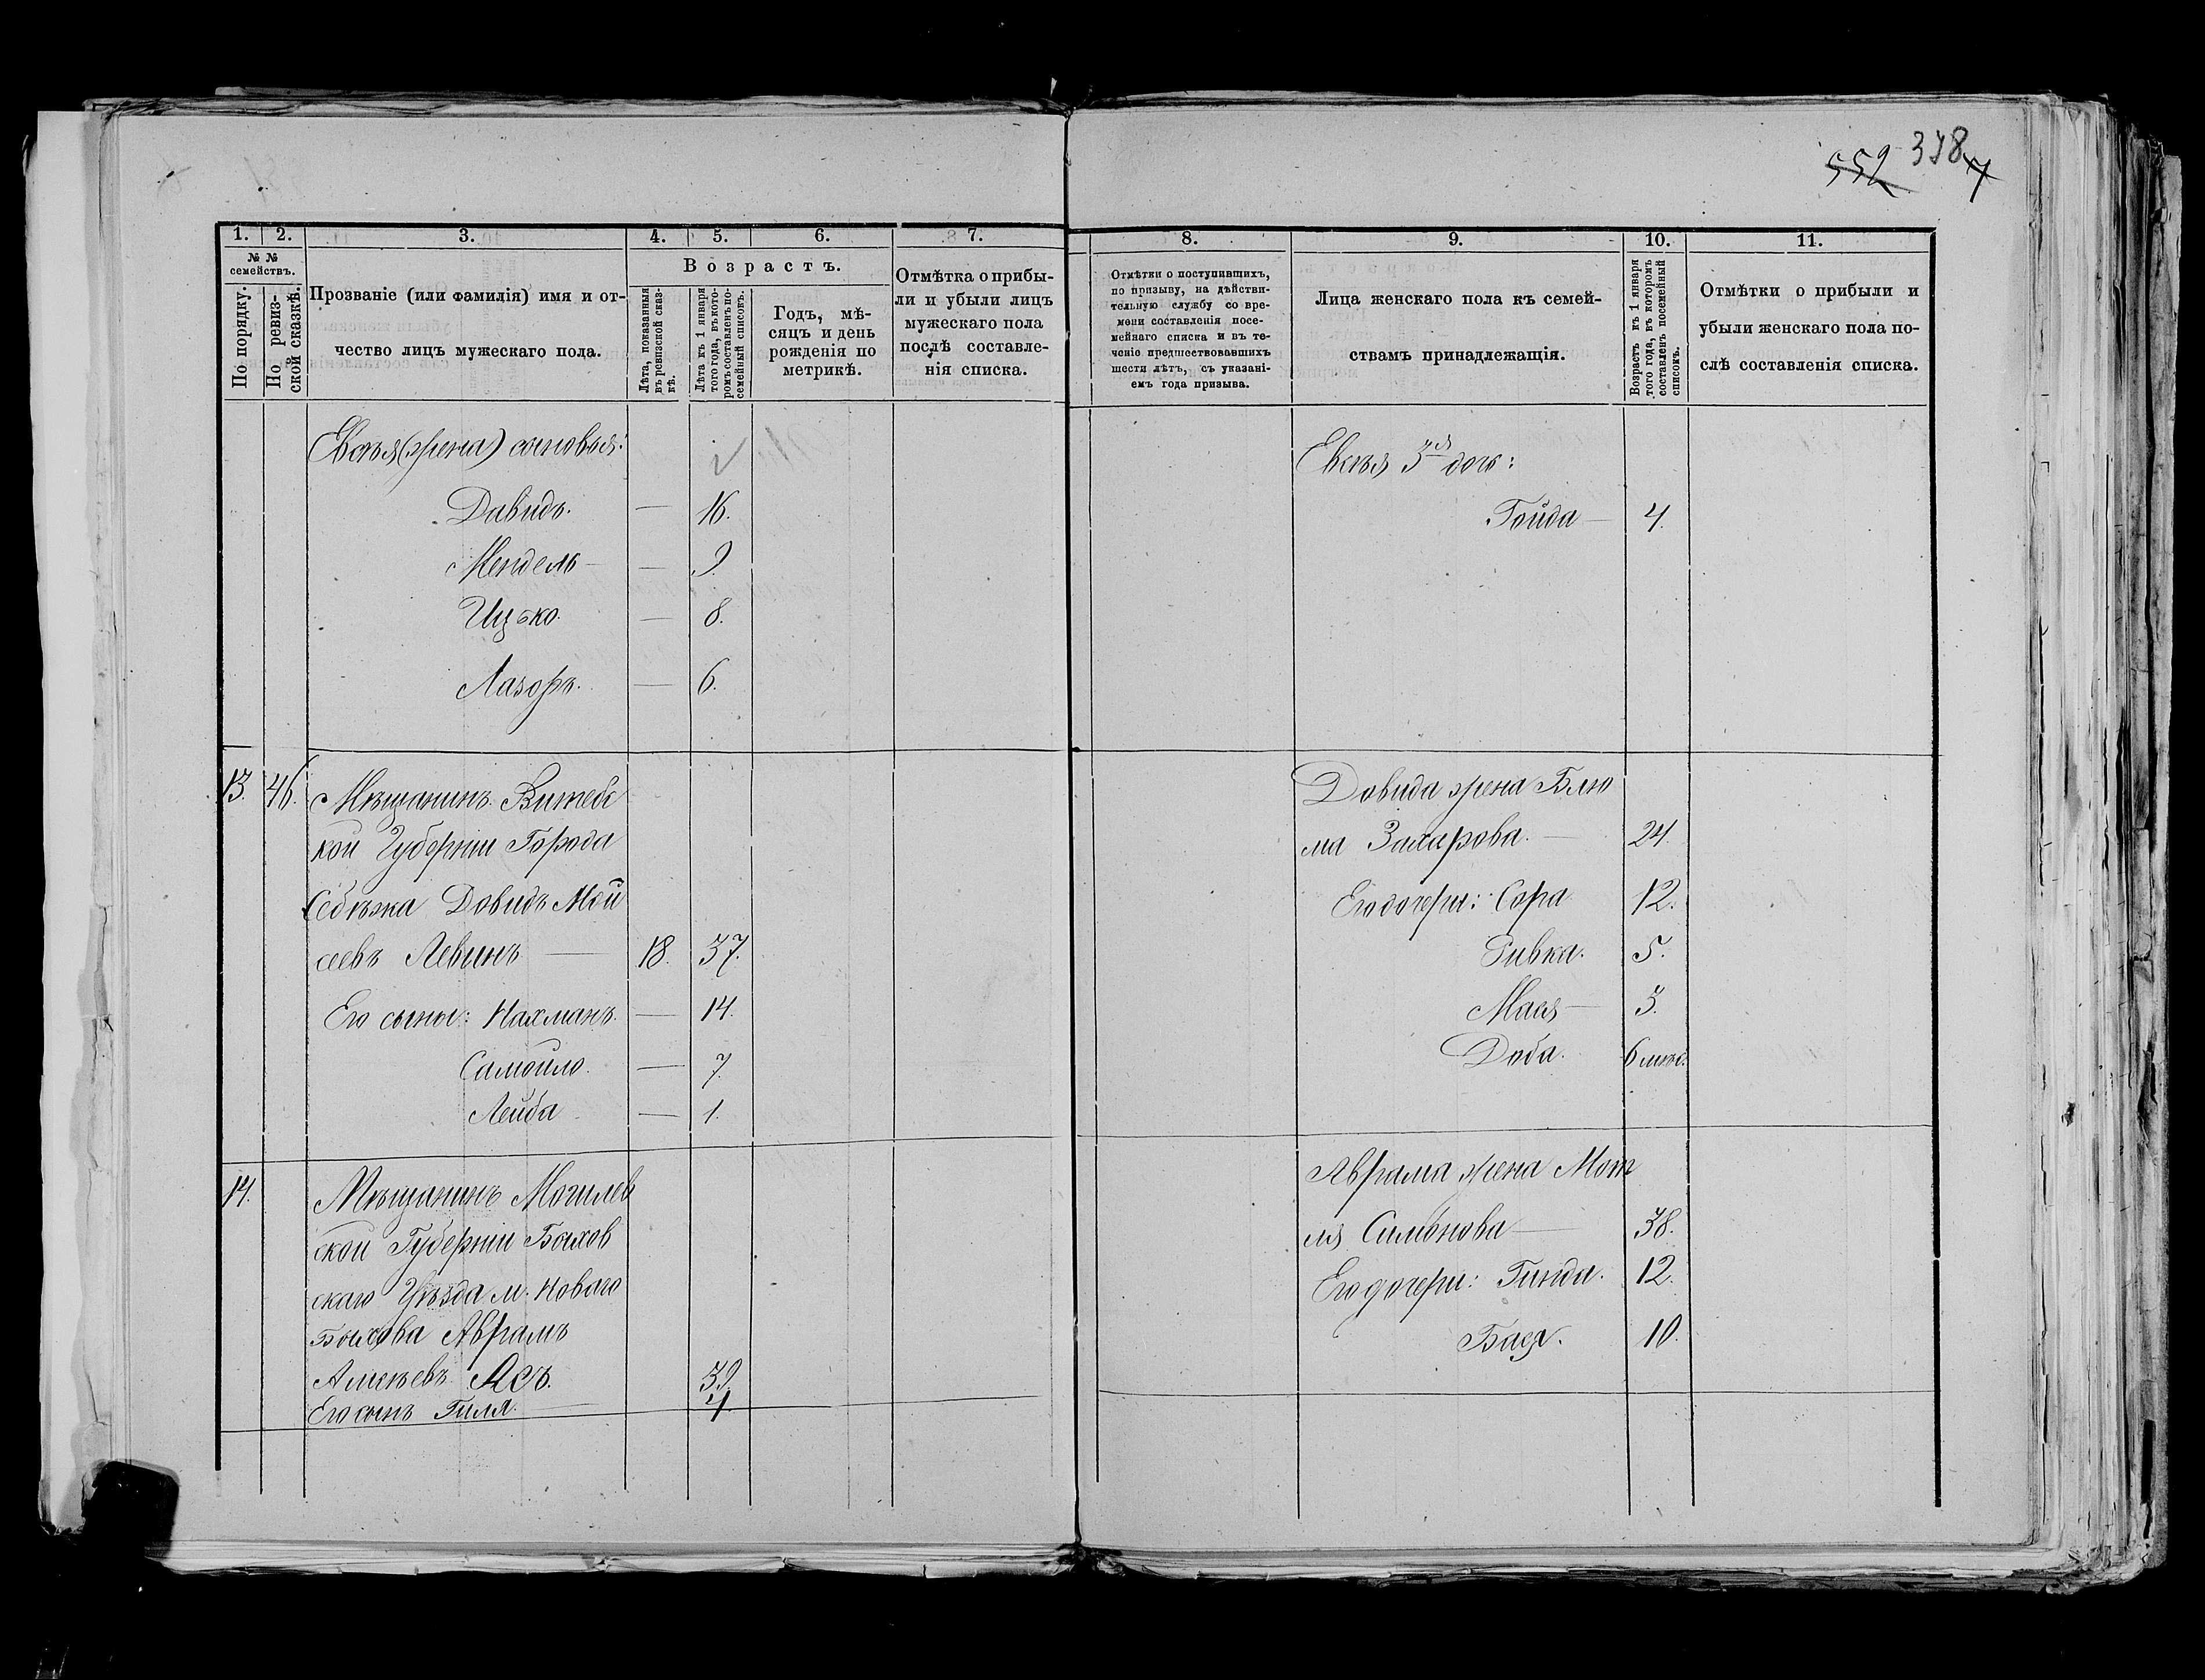 552 378 7
1. 2. 3. 4. 5. 6. 7.
№ № семействъ.
По порядку.
По ревизской сказкѣ.
Прозваніе (или фамилія) имя и отчество лицъ мужескаго пола.
Возрастъ.
Лѣта, показанныя въ ревизской сказкѣ.
Лѣта къ 1 января того года, въ которомъ составленъ посемейный списокъ.
Годъ, мѣсяцъ и день рожденія по метрикѣ.
Отмѣтка о прибыли и убыли лицъ мужескаго пола послѣ составленія списка.
(жена) сыновья:
Давидъ. — 16.
Мендель — — 9.
Ицъко — 8.
Лазоръ. — 6.
13. 46. Мѣщанинъ Витебс
кой Губерніи Города
Себѣжа Довидъ Мой
сеевъ Левинъ — 18. 37.
Его сыны: Нахманъ. — 14.
Самойло. — 7.
Лейба — 1.
14. Мѣщанинъ Могилев
ской Губерніи Быхов
скаго Уѣзда м. Новаго
Быхова Абрамъ
Асъ. 39.
Его сынъ Гиля. — 4
8. 9. 10. 11.
Отмѣтки о поступившихъ, по призыву, на дѣйствительную службу со времени составленія посемейнаго списка и въ теченіе предшествовавшихъ шести лѣтъ, съ указаніемъ года призыва.
Лица женскаго пола къ семействамъ принадлежащія.
Возрастъ къ 1 января того года, въ которомъ составленъ посемейный списокъ.
Отмѣтки о прибыли и убыли женскаго пола послѣ составленія списка.
3я дочь:
Гойда — 4.
Довида жена Блю
ма Захарова. — 24.
Его дочери: Сора 12.
Ривка. 5.
Мася — 3.
Доба. 6 мѣс.
Абрама жена Мот
ля Симонова — 38.
Его дочери: Гинда. 12.
Бася. 10.